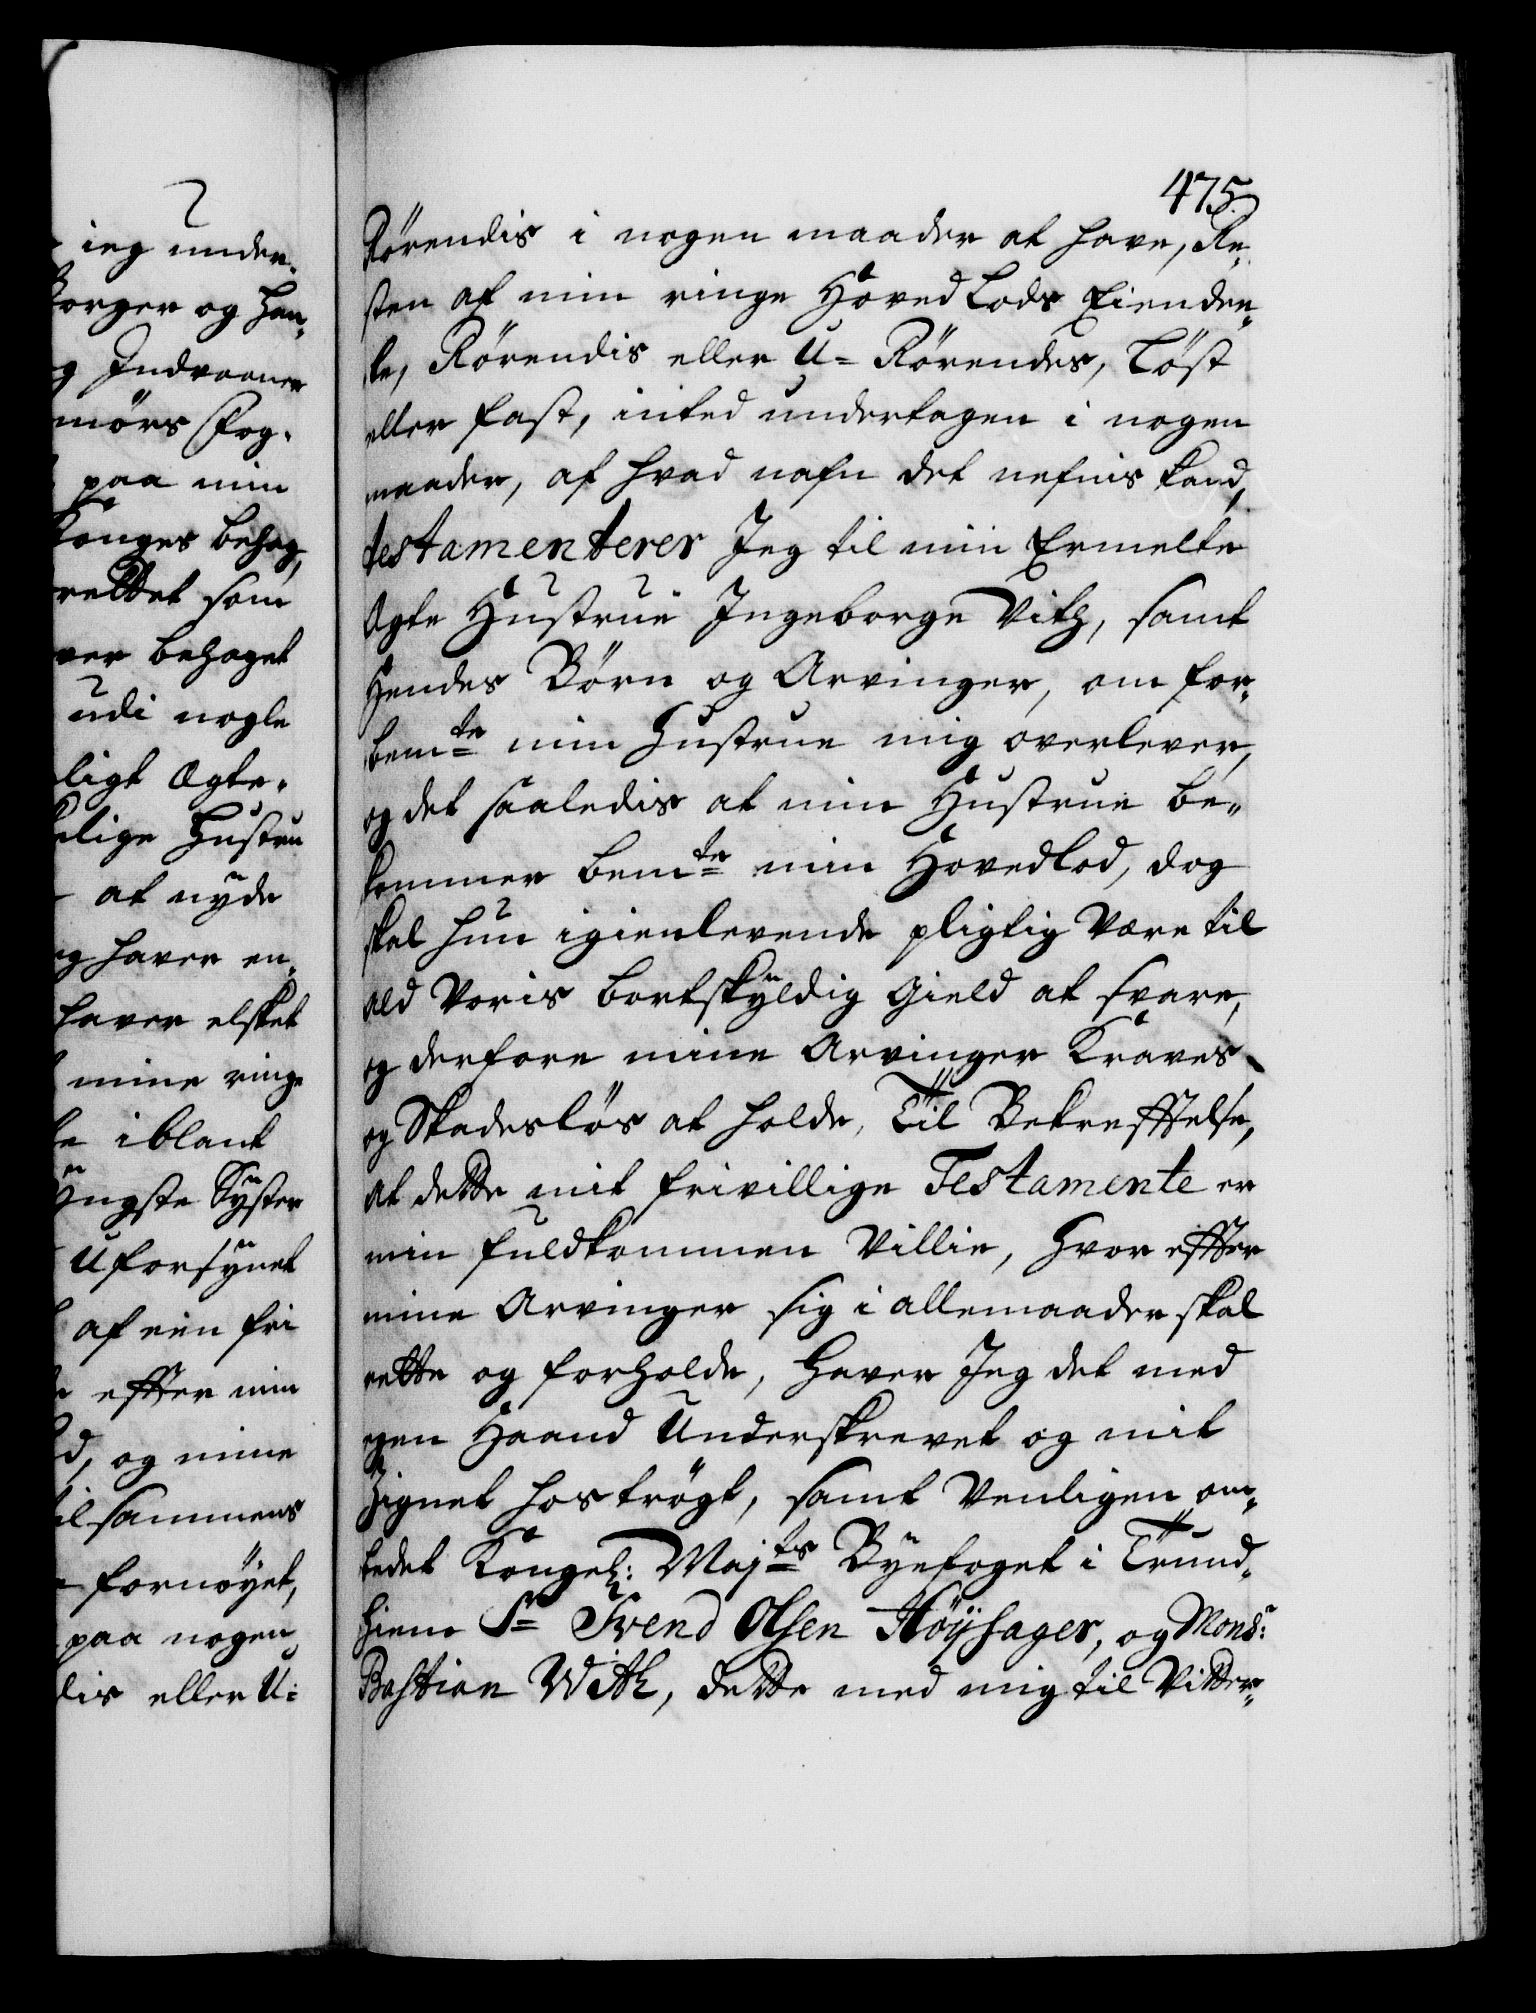 ieg under-
orger og Han-
g Indvaaner
mørs Fog-
paa min
Konges behag,
rettet som
ver behaget
udi nogle
ligt Ægte-
elige Hustru
at nyde
g haver en-
haver elsket
mine ringe
iblant
yngste Syster
Uforsynet
af een fri
effter min
d, og mine
ilsammens
fornøyet,
paa nogen
dis eller U-
475.
Rørendis i nogen maader at have, Re-
sten af min ringe Hoved Lods Eiende-
le, Rørendis eller U-Rørendes, Løst
eller fast, inted undertagen i nogen
maader, af hvad nafn det nefnis kand,
testamenterer Jeg til min Ermelte
Ægte Hustrue Ingeborge Vith, samt
Hendes Børn og Arvinger, om for-
bemte min Hustrue mig overlever,
og det saaledis at min Hustrue be-
kommer bemte min Hovedlod, dog
skal hun igienlevende pligtig Være til
ald Voris bortskyldig Gield at svare,
og derfore mine Arvinger Kraves
og Skadesløs at holde, Til Bekrefftelse,
at dette mit frivillige Testamente er
min fuldkommen Villie, Hvor effter
mine Arvinger sig i allemaader skal
rette og forholde, Haver Jeg det med
egen Haand Underskrevet og mit
Zignet hostrøgt, samt Venligen om-
bedet Kongel: Majts Byefoget i Trund-
hiem Sr Svend Olsen Høysager, og Monsr:
Bastian With, dette med mig til Vitter-